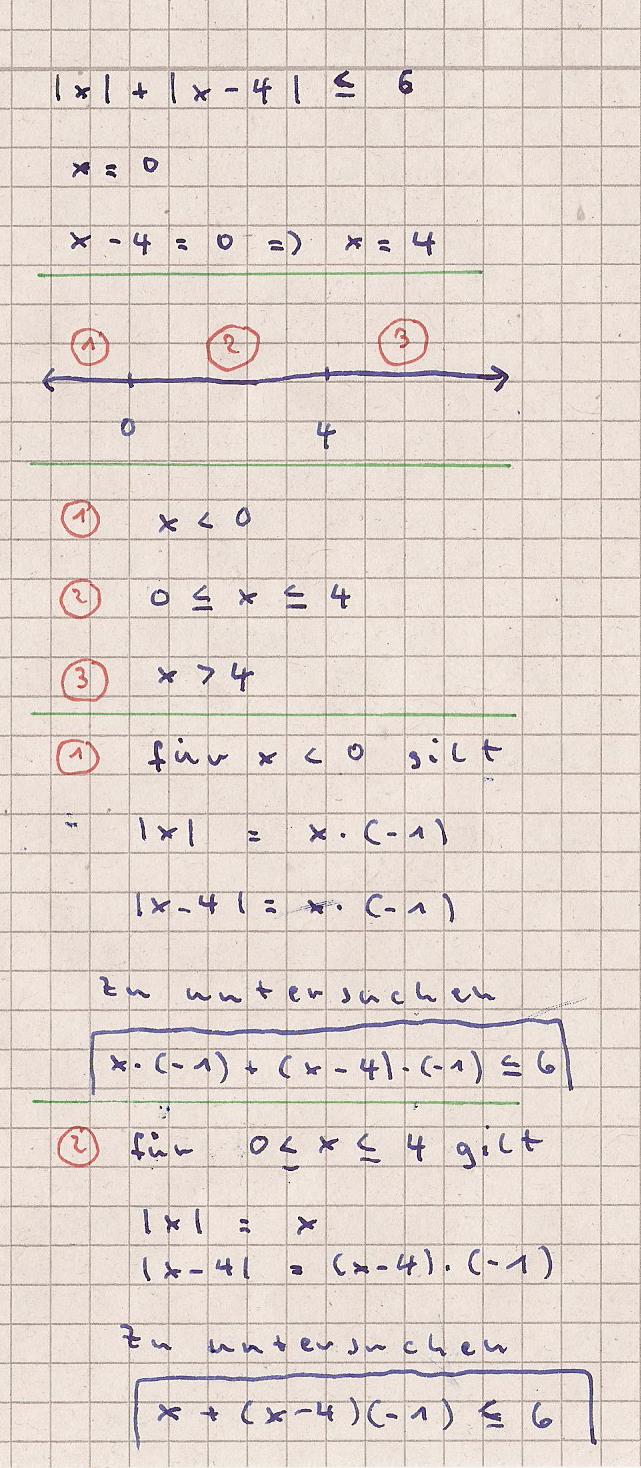 |x| + |x - 4| ≤ 6
x = 0
x - 4 = 0 => x = 4
① ② ③
0 4
① x < 0
② 0 ≤ x ≤ 4
③ x > 4
① für x < 0 gilt
|x| = x · (-1)
|x - 4| = x · (-1)
Zu untersuchen
x · (-1) + (x - 4) · (-1) ≤ 6
② für 0 ≤ x ≤ 4 gilt
|x| = x
|x - 4| = (x - 4) · (-1)
Zu untersuchen
x + (x - 4)(-1) ≤ 6